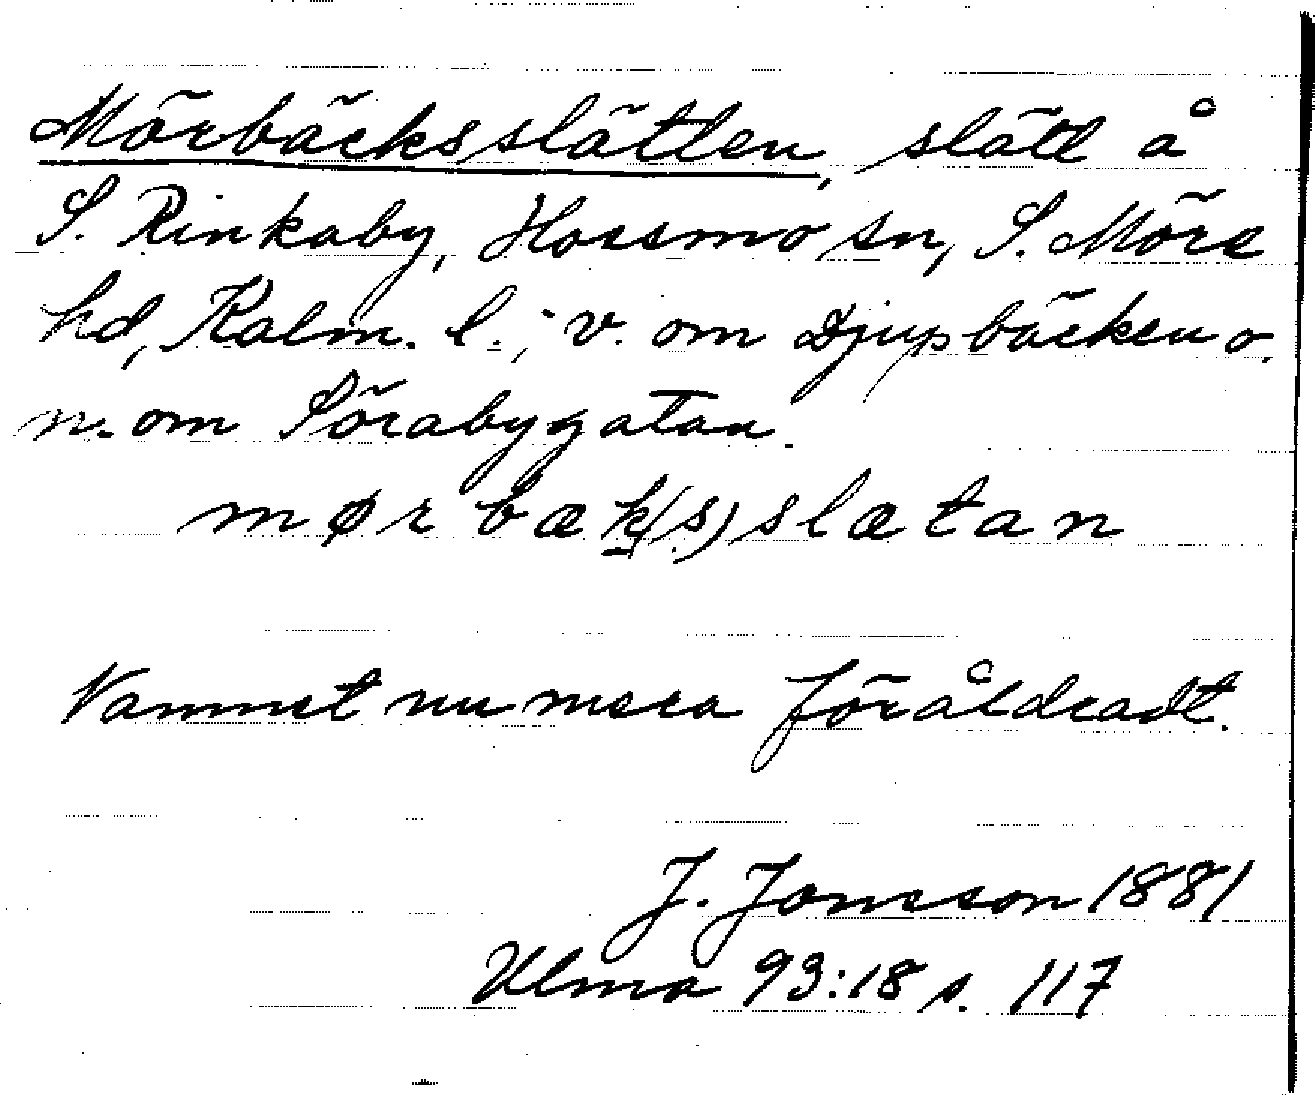 Mörbäcksslätten, slätt å
S. Rinkaby, Hossmo sn, S. Möre
hd, Kalm. l.; v. om Djupbäcken o.
n. om Sörabygatan.
mørbæk(s)slætan
Namnet nu mera föråldradt.
J. Jonsson 1881
Ulma 93:18 s. 117